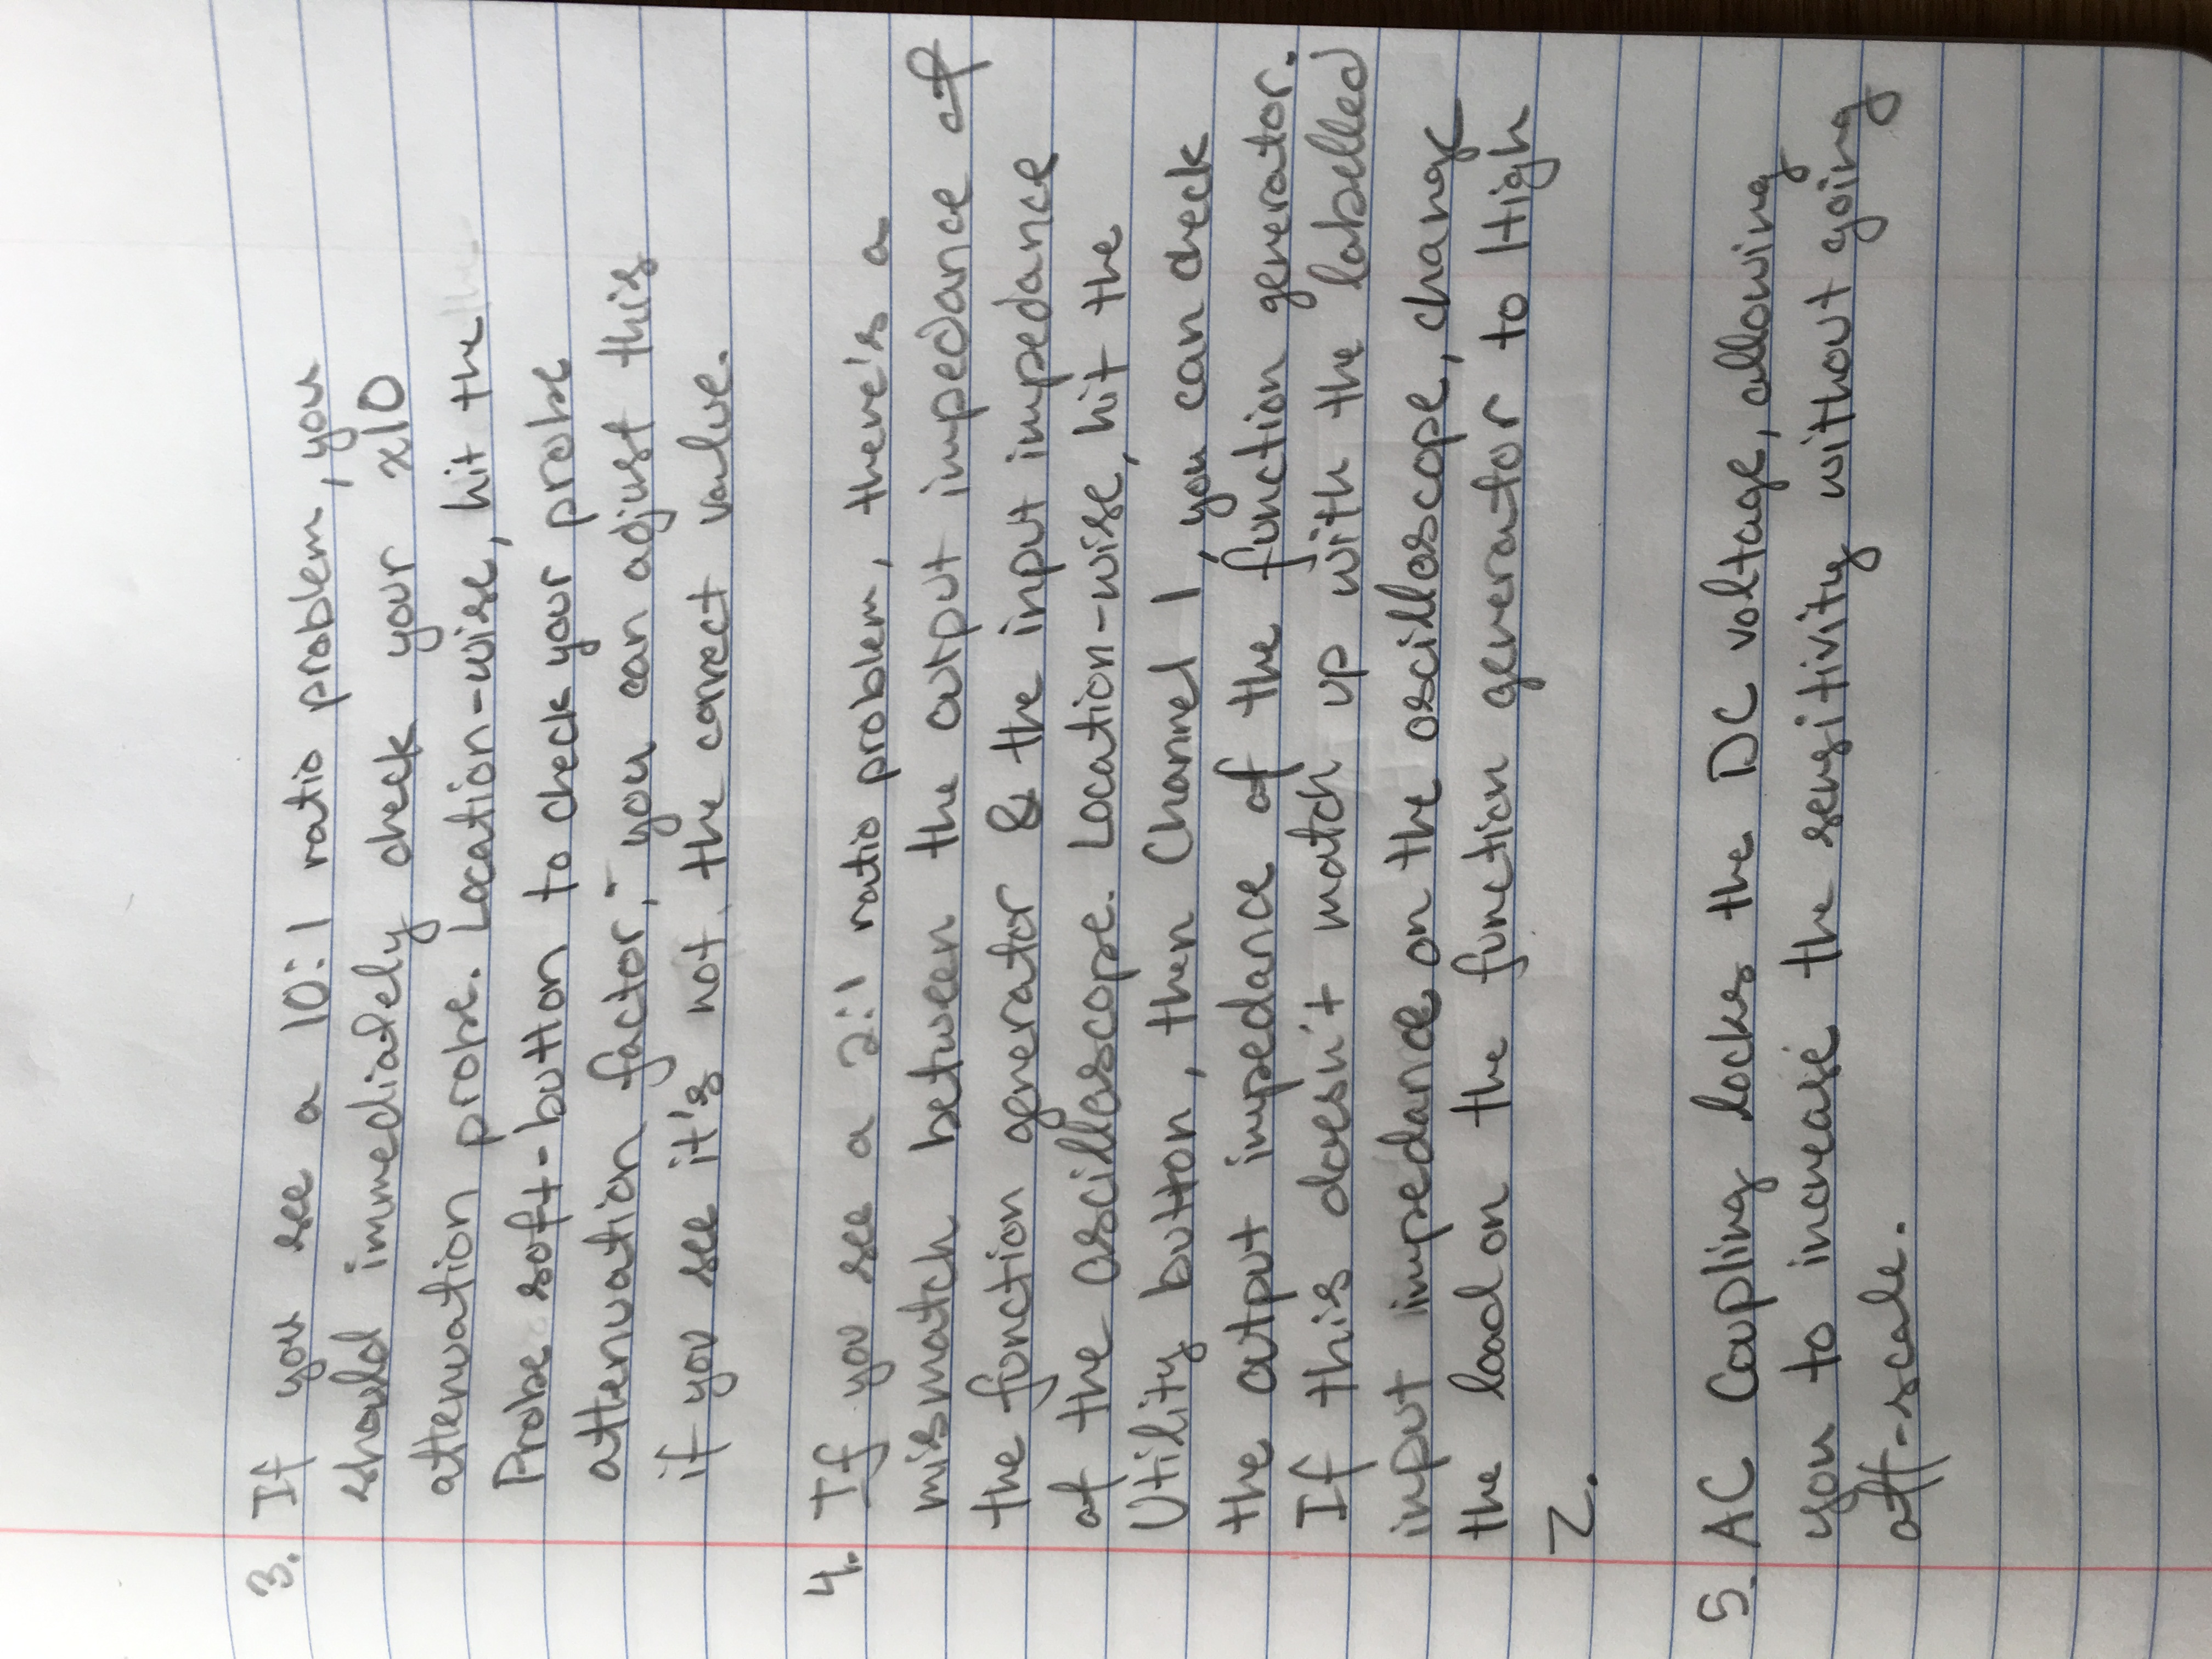 3. If you see a 10:1 ratio problem, you
should immediately check your x10
attenuation probe. Location-wise, hit the
Probe soft-button to check your probe
attenuation factor, - you can adjust this
if you see it's not the correct value.
4. If you see a 2:1 ratio problem, there's a
mismatch between the output impedance of
the function generator & the input impedance
of the oscilloscope. Location-wise, hit the
Utility button, then Channel 1, you can check
the output impedance of the function generator.
If this doesn't match up with the labelled
input impedance on the oscilloscope, change
the load on the function generator to High
Z.
5. AC Coupling locks the DC voltage, allowing
you to increase the sensitivity without going
off-scale.